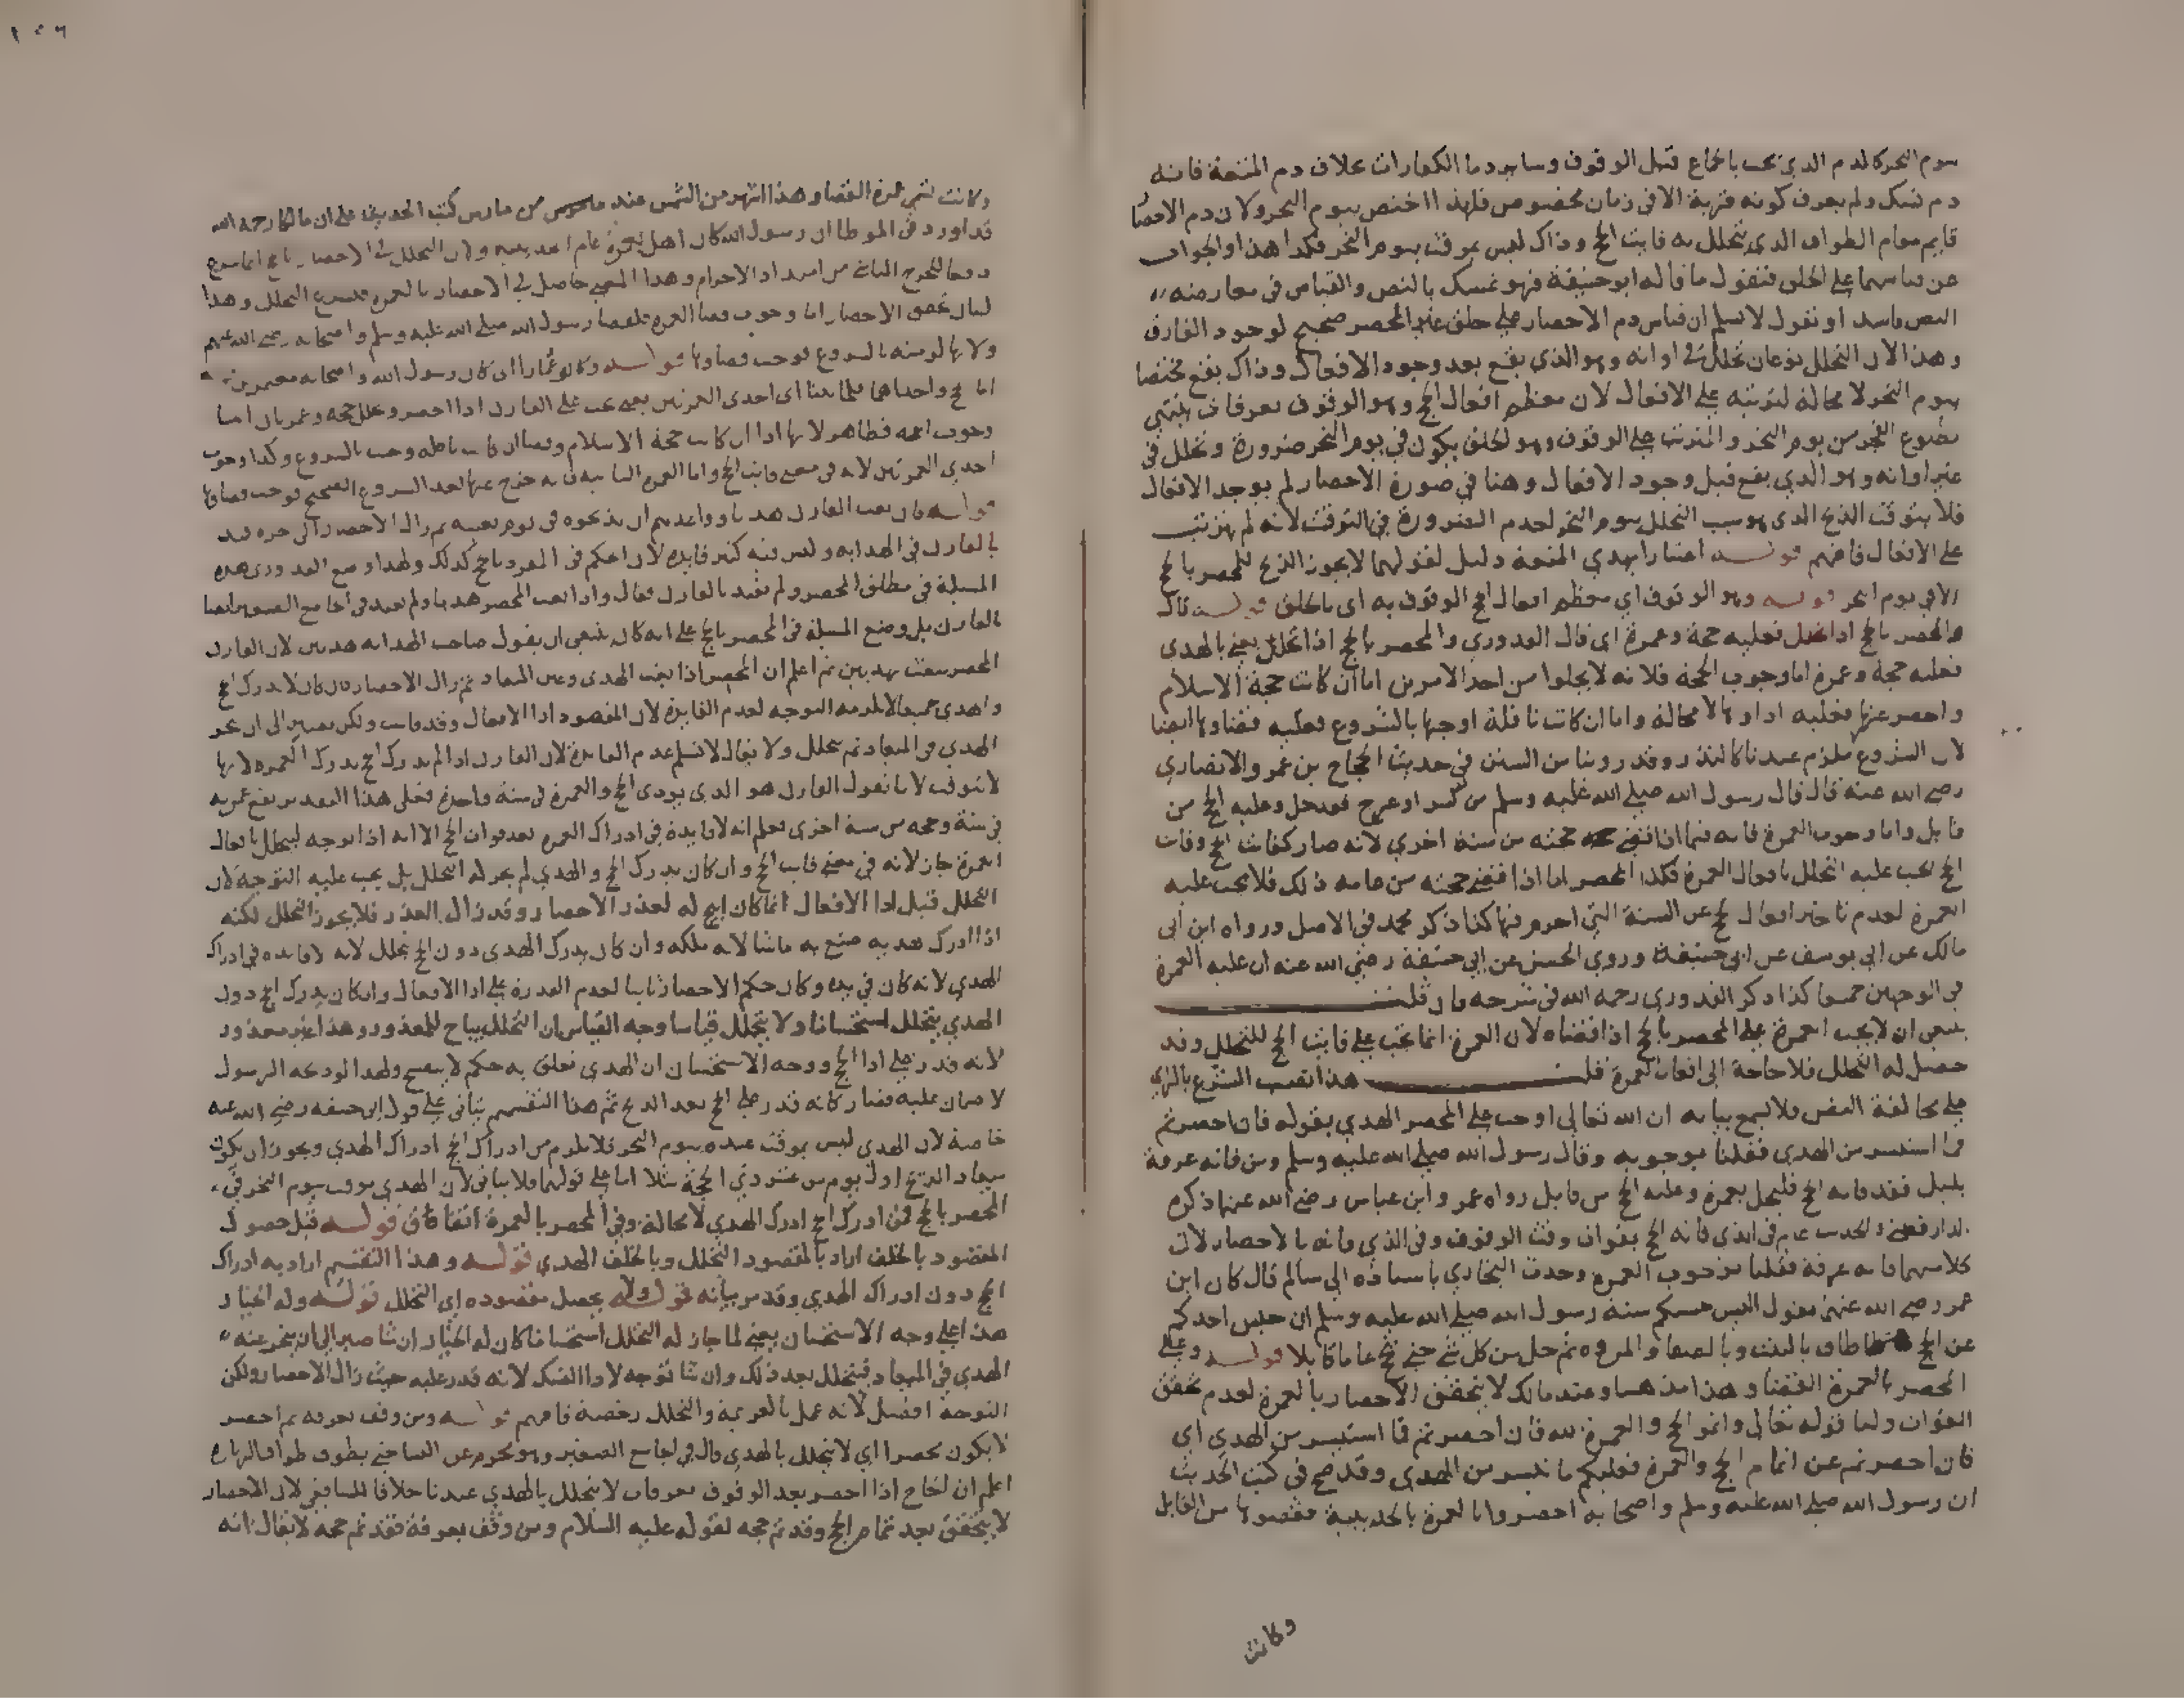 يوم النحر كالدم الذي يجب بالجماع قبل الوقوف وساير دما الكفارات بخلاف دم المتعة فانه
دم نسك ولم يعرف كونه قربة الا في زمان مخصوص فلهذا اختص بيوم النحر ولان دم الاحصا
قايم مقام الطواف الذي يتحلل به فايت الحج وذاك ليس بموقت بيوم النحر فكذا هذا والجواب
عن قياسهما على الحلق فنقول ما قاله ابو حنيفة فهو تمسك بالنص والقياس في معارضة
النص فاسد او نقول لا نسلم ان قياس دم الاحصار على حلق غير المحصر صحيح لوجود الفارق
وهذا لان التحلل نوعان تحلل في اوانه وهو الذي يقع بعد وجود الافعال وذاك يقع مختصا
بيوم النحر لا محالة لترتبه على الافعال لان معظم افعال الحج وهو الوقوف بعرفات ينتهي
بطلوع الفجر من يوم النحر والمترتب على الوقوف وهو الحلق يكون في يوم النحر ضرورة وتحلل في
غير اوانه وهو الذي يقع قبل وجود الافعال وهنا في صورة الاحصار لم يوجد الافعال
فلا يتوقت الذبح الذي هو سبب التحلل بيوم النحر لعدم الضرورة في التوقت لانه لم يترتب
على الافعال فافهم قوله اعتبارا بهدي المتعة دليل لقولهما لا يجوز الذبح للمحصر بالحج
الا في يوم النحر قوله وهو الوقوف اي معظم افعال الحج الوقوف به اي بالحلق قوله قال
والمحصر بالحج اذا تحلل فعليه حجة وعمرة اي قال القدوري والمحصر بالحج اذا تحلل يعني بالهدي
فعليه حجة وعمرة اما وجوب الحجة فلانه لا يخلوا من احد الامرين اما ان كانت حجة الاسلام
واحصر عنها فعليه اداوها لا محالة واما ان كانت نافلة اوجبها بالشروع فعليه قضاوها ايضا
لان الشروع ملزم عندنا كالنذر وقد روينا من السنن في حديث الحجاج بن عمرو الانصاري
رضي الله عنه قال قال رسول الله صلى الله عليه وسلم من كسر او عرج فقد حل وعليه الحج من
قابل واما وجوب العمرة فانه فيما اذا قضى حجته من سنة اخري لانه صار كفايت الحج وفايت
الحج يجب عليه التحلل بافعال العمرة فكذا المحصر اما اذا قضى حجته من عامه ذلك فلا يجب عليه
العمرة لعدم تاخير افعال الحج عن السنة التي احرم فيها كذا ذكر محمد في الاصل ورواه ابن ابي
مالك عن ابي يوسف عن ابي حنيفة وروي الحسن عن ابي حنيفة رضي الله عنه ان عليه العمرة
في الوجهين جميعا كذا ذكر القدوري رحمه الله في شرحه فان قلت
ينبغي ان لا يجب العمرة على المحصر بالحج اذا قضاه لان العمرة انما تجب على فايت الحج للتحلل وقد
حصل له التحلل فلا حاجة الى افعال العمرة قلت هذا نصب الشرع بالراي
على مخالفة النص فلا يسمع بيانه ان الله تعالى اوجب على المحصر الهدي بقوله فان احصرتم
فما استيسر من الهدي فقلنا بوجوبه وقال رسول الله صلى الله عليه وسلم ومن فاته عرفة
بليل فقد فاته الحج فليحل بعمرة وعليه الحج من قابل رواه عمر وابن عباس رضي الله عنهما ذكره
الدارقطني والحديث عام في الذي فاته الحج بفوات وقت الوقوف وفي الذي فاته بالاحصار لان
كلاهما فاته عرفة فقلنا بوجوب العمرة وحدث البخاري باسناده الى سالم قال كان ابن
عمر رضي الله عنهما يقول اليس حسبكم سنة رسول الله صلى الله عليه وسلم ان حبس احدكم
عن الحج طاف بالبيت وبالصفا والمروه ثم حل من كل شي حتى يحج عاما قابلا قوله وعلى
المحصر بالعمرة القضا وهذا مذهبنا وعند مالك لا يتحقق الاحصار بالعمرة لعدم تحقق
الفوات ولنا قوله تعالى واتموا الحج والعمرة لله فان احصرتم فما استيسر من الهدي اي
فان احصرتم عن اتمام الحج والعمرة فعليكم ما تيسر من الهدي وقد صح في كتب الحديث
ان رسول الله صلى الله عليه وسلم واصحابه احصروا بالعمرة بالحديبية فقضوها من القابل
وكانت
١٥٦
وكانت تسمى عمرة القضا وهذا اشهر من الشمس عند من مارس كتب الحديث على ان مالكا رحمه الله
قد اورد في الموطا ان رسول الله كان اهل بعمرة عام الحديبيه ولان التحلل في الاحصار بالحج انما شرع
دفعا للحرج الثابت من امتداد الاحرام وهذا المعنى حاصل في الاحصار بالعمرة فشرع التحلل وهذا
لبيان تحقق الاحصار اما وجوب قضا العمرة فلقضا رسول الله صلى الله عليه وسلم واصحابه رضي الله عنهم
ولانها لزمته بالشروع فوجب قضاوها قوله وكانوا عمارا اي كان رسول الله واصحابه معتمرين
اما الحج واحداهما فلما بينا اي احدى العمرتين يعني يجب على القارن اذا احصر وتحلل حجه وعمرتان اما
وجوب الحجه فظاهر لانها ادا ان كانت حجة الاسلام وقضا ان كانت نافله وجبت بالشروع وكذا وجوب
احدي العمرتين لانه في معنى فايت الحج واما العمرة الثانيه فلانه خرج عنها بعد الشروع الصحيح فوجب قضاوها
قوله فان بعث القارن هديا وواعدهم ان يذبحوه في يوم بعينه ثم زال الاحصار الى اخره قيد
بالقارن في الهدايه وليس فيه كثير فايدة لان الحكم في المفرد بالحج كذلك ولهذا وضع القدوري هذه
المسيلة في مطلق المحصر ولم يقيد بالقارن فقال واذا بعث المحصر هديا ولم يقيد في الجامع الصغير ايضا
بالقارن بل وضع المسيلة في المحصر بالحج على انه كان ينبغي ان يقول صاحب الهدايه هديين لان القارن
المحصر يبعث بهديين ثم اعلم ان المحصر اذا بعث الهدي وعين الميعاد ثم زال الاحصار فان كان لا يدرك الحج
والهدي جميعا لا يلزمه التوجه لعدم الفايدة لان المقصود ادا الافعال وقد فات ولكن يصير الى ان ينحر
الهدي في الميعاد ثم يتحلل ولا يقال لا نسلم عدم الفايدة لان القارن اذا لم يدرك الحج يدرك العمرة لانها
لا تتوقت لانا نقول القارن هو الذي يودي الحج والعمرة في سنة واحدة فعلى هذا التقدير يقع عمرته
في سنة وحجه من سنة اخرى فعلم انه لا فايدة في ادراك العمرة بعد فوات الحج الا انه اذا توجه ليتحلل بافعال
العمرة جاز لانه في معنى فايت الحج وان كان يدرك الحج والهدي لم يجز له التحلل بل يجب عليه التوجه لان
التحلل قبل ادا الافعال انما كان ابيح له لعذر الاحصار وقد زال العذر فلا يجوز التحلل لكنه
اذا ادرك هديه صنع به ما شا لانه ملكه وان كان يدرك الهدي دون الحج يتحلل لانه لا فايده في ادراك
الهدي لانه كان في يده وكان حكم الاحصار ثابتا لعدم القدرة على ادا الافعال وان كان يدرك الحج دون
الهدي يتحلل استحسانا ولا يتحلل قياسا وجه القياس ان التحلل يباح للمعذور وهذا غير معذور
لانه قدر على ادا الحج ووجه الاستحسان ان الهدي تعلق به حكم لا يفسح ولهذا لو ذبحه الرسول
لا ضمان عليه فصار كانه قدر على الحج بعد الذبح ثم هذا التقسيم يتاتى على قول ابي حنيفه رضي الله عنه
خاصة لان الهدي ليس بموقت عنده بيوم النحر فلا يلزم من ادراك الحج ادراك الهدي ويجوز ان يكون
ميعاد الذبح اول يوم من عشر ذي الحجة مثلا اما على قولهما فلا يتاتى لان الهدي موقت بيوم النحر في
المحصر بالحج فمن ادرك الحج ادرك الهدي لا محالة وفي المحصر بالعمرة اتفاقا قوله قبل حصول
المقصود بالخلف اراد بالمقصود التحلل وبالخلف الهدي قوله وهذا التقسيم اراد به ادراك
الحج دون ادراك الهدي وقد مر بيانه قوله ولا يحصل مقصوده اي التحلل قوله وله الخيار
هذا على وجه الاستحسان يعني لما جاز له التحلل استحسانا كان له الخيار ان شا صبر الى ان ينحر عنه
الهدي في الميعاد فيتحلل بعد ذلك وان شا توجه لادا النسك لانه قدر عليه حيث زال الاحصار ولكن
التوجه افضل لانه عمل بالعزيمة والتحلل رخصة فافهم قوله ومن وقف بعرفه ثم احصر
لا يكون محصرا اي لا يتحلل بالهدي قال في الجامع الصغير وهو محرم عن النسا حتى يطوف طواف الزيارة
اعلم ان الحاج اذا احصر بعد الوقوف بعرفات لا يتحلل بالهدي عندنا خلافا للشافعي لان الاحصار
لا يتحقق بعد تمام الحج وقد تم حجه لقوله عليه السلام ومن وقف بعرفة فقد تم حجه لا يقال انه